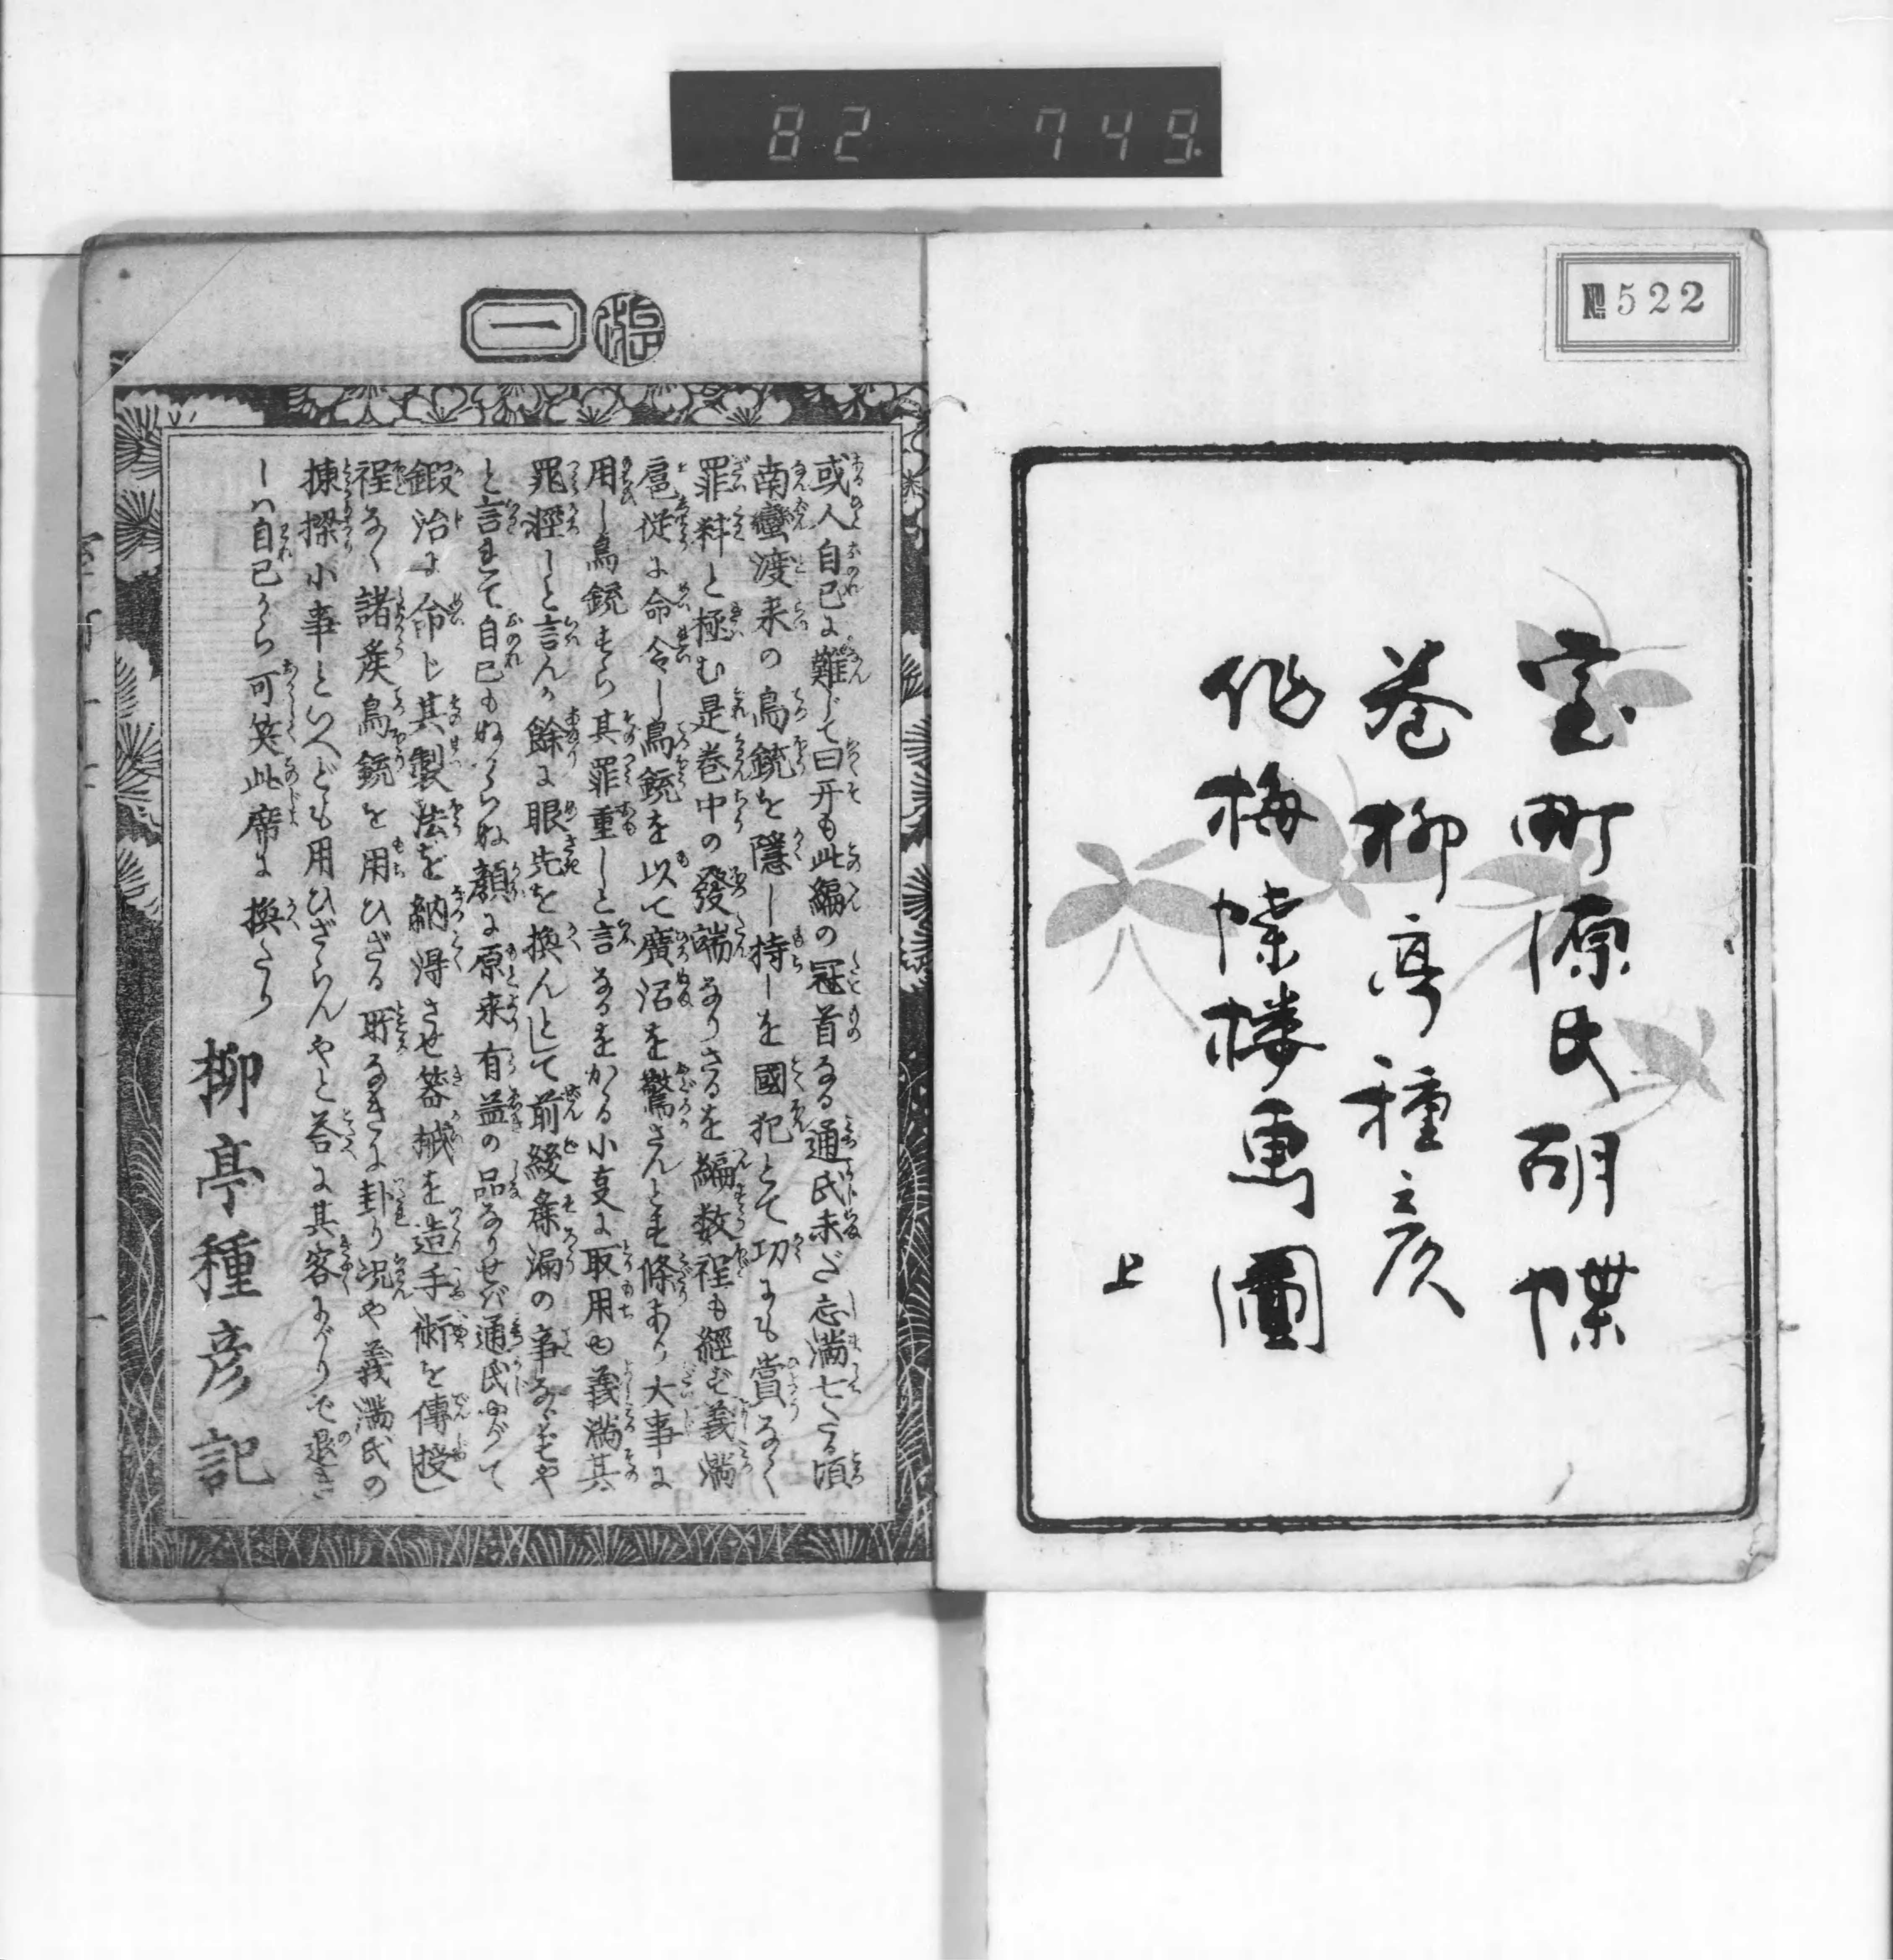 82 749
№522
室町源氏胡蝶
巻柳亭種彦
作梅蝶楼画圖
上
一
或人自己に難じて曰开も此編の冠首なる通氏未だ志満七たる頃
南蠻渡来の鳥銃を隠し持しを國犯とて功にも賞なく
罪科と極む是巻中の發端なりさるを編数程も經ず義満
扈従に命令し鳥銃を以て廣沼を驚さんとせ條あり大事に
用し鳥銃すら其罪重しと言なるをかゝる小事に取用も義満其
罪軽しと言んか餘に眼先を換んとして前後麁漏の事ならずや
と言れて自己もぬからぬ顔に原来有益の品なりせば通氏
鍛冶に命じ其製法を納得させ器械を造手術を傳授し
程なく諸矦鳥銃を用ひざる所なきに
況や義満氏の
揀擇小事といへども用ひざらんやと荅に其客
退き
しハ自己から可笑此席に換たり
柳亭種彦記